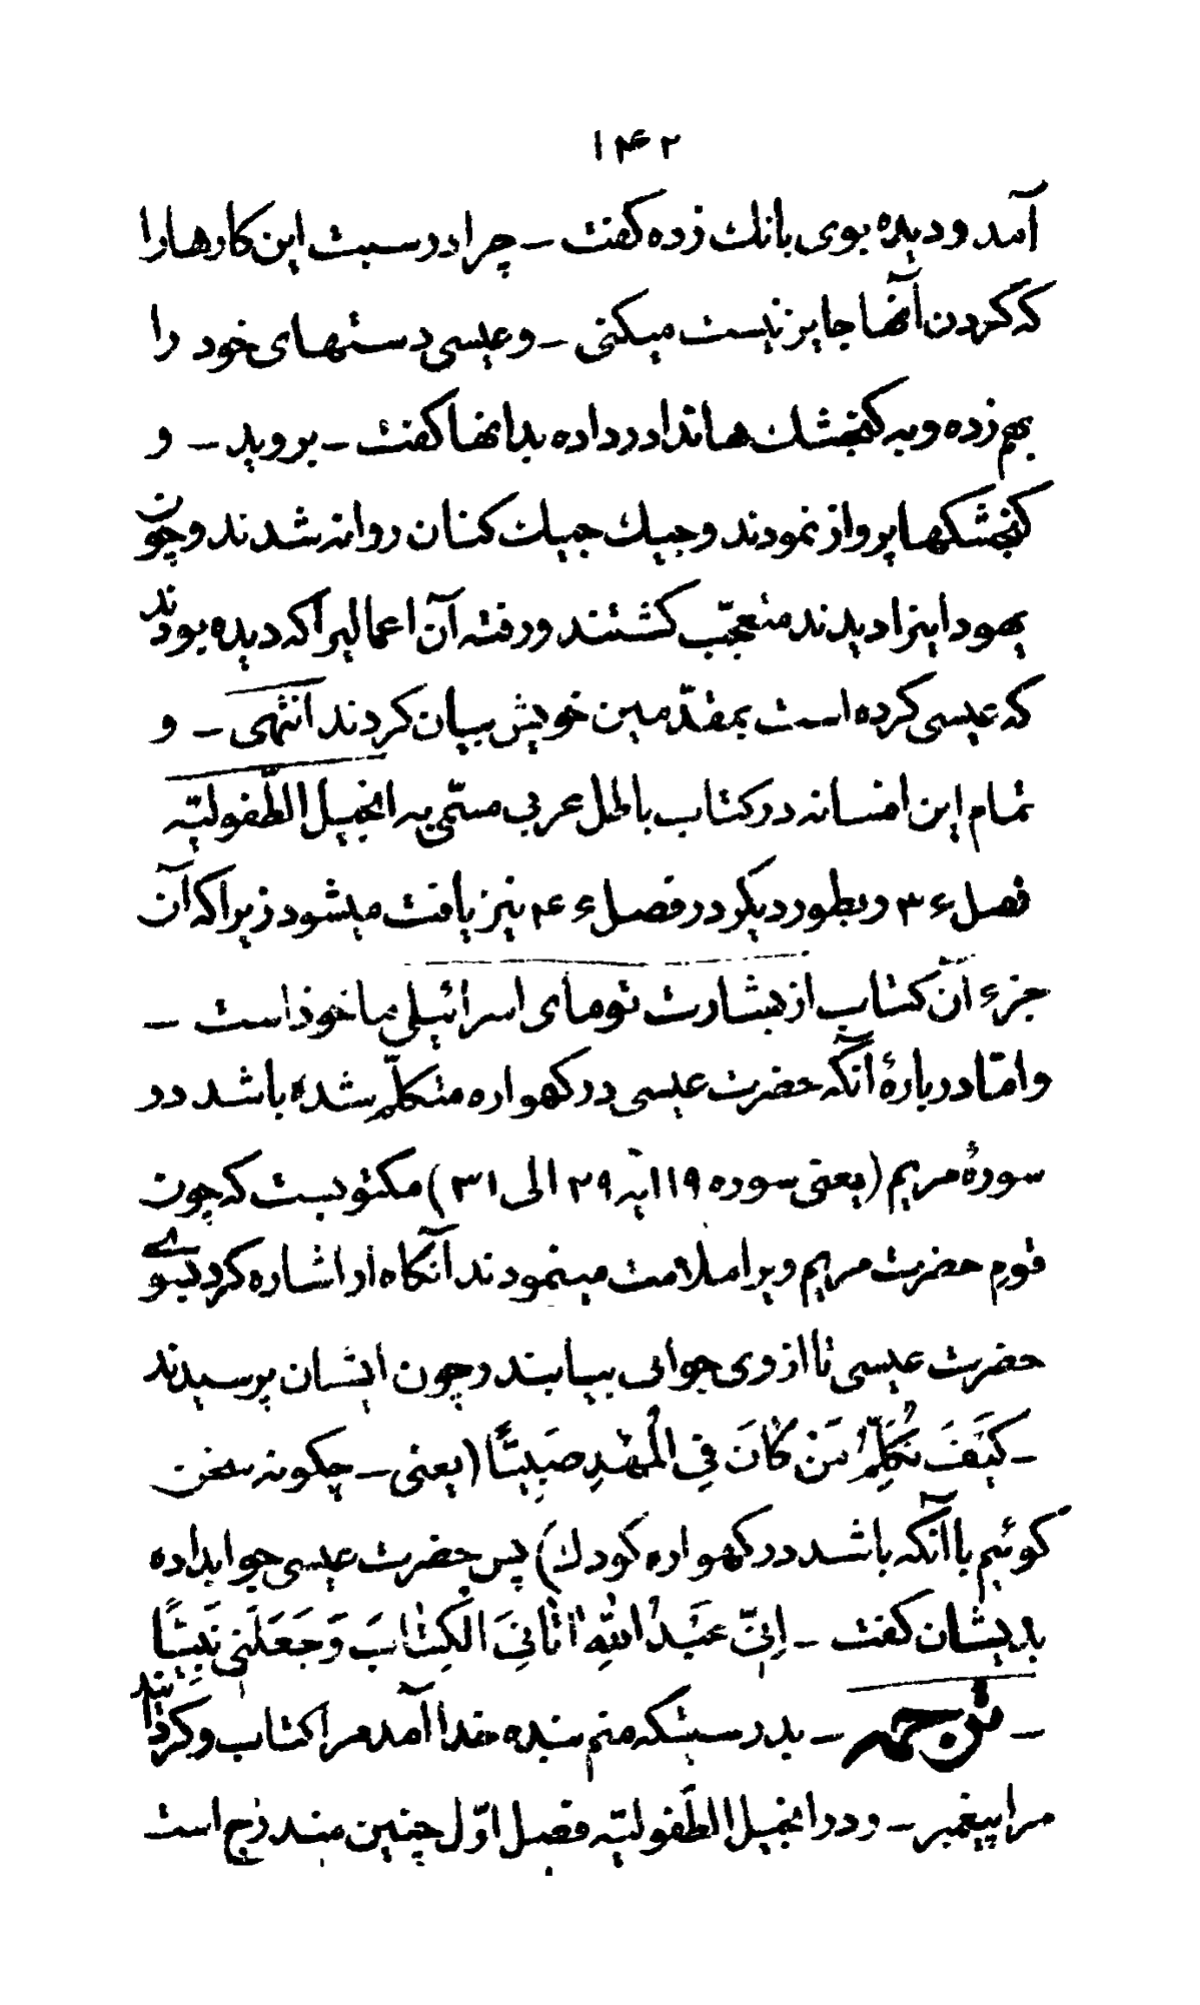 ۱۴۲
آمد و دیده بوی بانك زده کفت – چرا در سبت این کارها را
که کردن آنها جایز نیست میکنی – و عیسی دستهای خود را
بهم زده و به کنجشك ها ندا در داده بدانها کفت – بروید – و
کنجشکها پرواز نمودند و جیك جیك کنان روانه شدند و چون
یهود اینرا دیدند متعجّب کشتند و رفته آن اعمالیرا که دیده بودند
که عیسی کرده است بمقدّمین خویش بیان کردند انتهی – و
تمام این افسانه در کتاب باطل عربی مسمّی به انجیل الطّفولیّه
فصل ۳۶ و بطور دیکر در فصل ۴۶ نیز یافت میشود زیرا که آن
جزء آن کتاب از بشارت تومای اسرائیلی ماخوذ است –
و امّا دربارهٔ آنکه حضرت عیسی در کهواره متکلّم شده باشد در
سورهٔ مریم (یعنی سوره ۱۹ آیه ۲۹ الی ۳۱) مکتوبست که چون
قوم حضرت مریم ویرا ملامت مینمودند آنکاه او اشاره کرد بسوی
حضرت عیسی تا از وی جوابی بیابند و چون ایشان پرسیدند
– كَيْفَ نُكَلِّمُ مَنْ كَانَ فِي الْمَهْدِ صَبِيًّا (یعنی – چکونه سخن
کوئیم با آنکه باشد در کهواره کودك) پس حضرت عیسی جوابداده
بدیشان کفت – اِنّی عَبْدُ اللهِ اٰتَانِیَ الْکِتٰابَ وَجَعَلَنِی نَبِيًّا
– ترجمه – بدرستیکه منم بنده خدا آمد مرا کتاب و کردانید
مرا پیغمبر – و در انجیل الطّفولیّه فصل اوّل چنین مندرج است